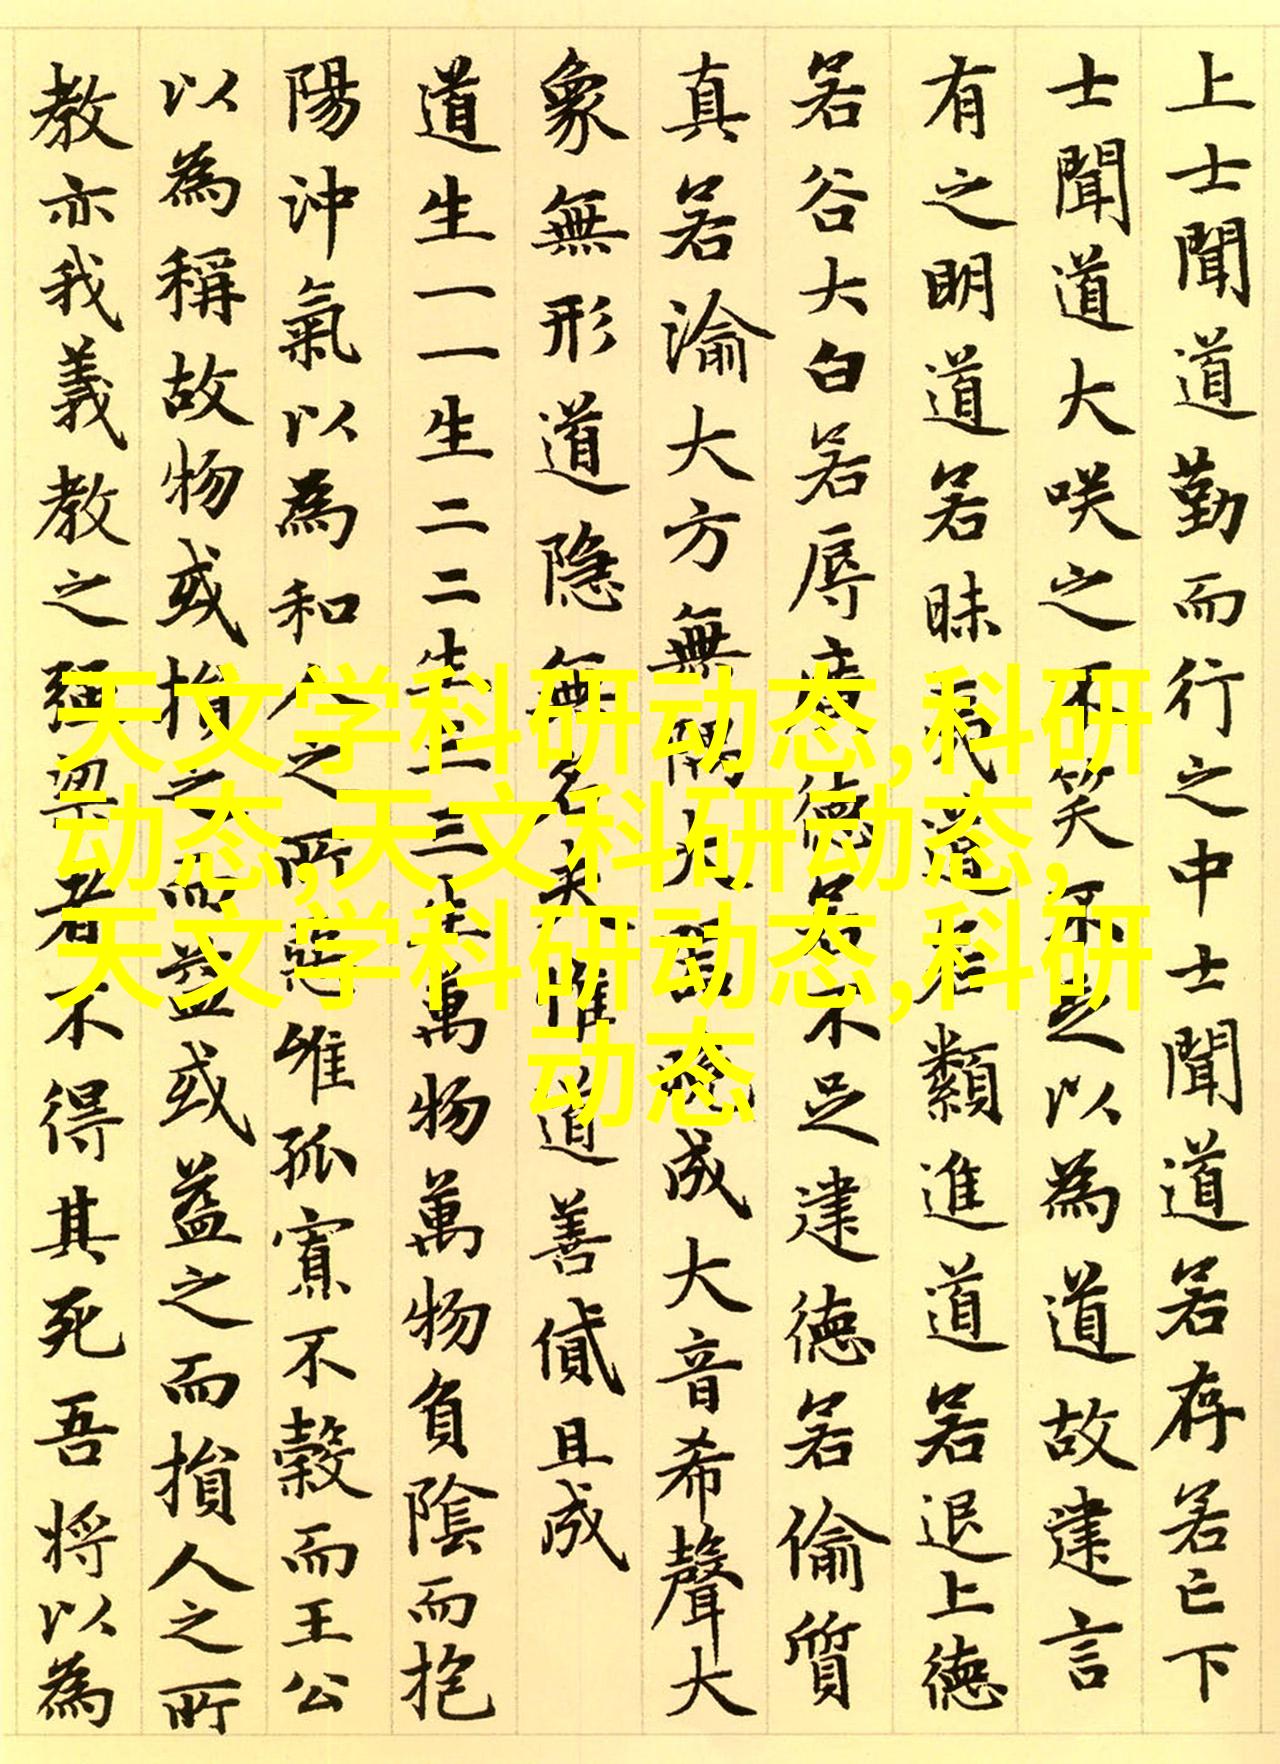 上士聞道勤而行之中士聞道若存若亡下
士聞道大咲之不笑不足以為道故建言
有之明道若昧夷道若類進道若退上德
若谷大白若辱廣德若不足建德若偷質
真若渝大方無隅大器晚成大音希聲大
象無形道隐無名夫惟道善貸且成
道生一一生二二生三三生萬物萬物負陰而抱
陽沖氣以為和人之所惡唯孤寡不穀而王公
以為稱故物或損之而益或益之而損人之所
教亦我義教之強梁者不得其死吾将以為
天文学科研动态,科研
动态,天文科研动态,
天文学科研动态,科研
动态